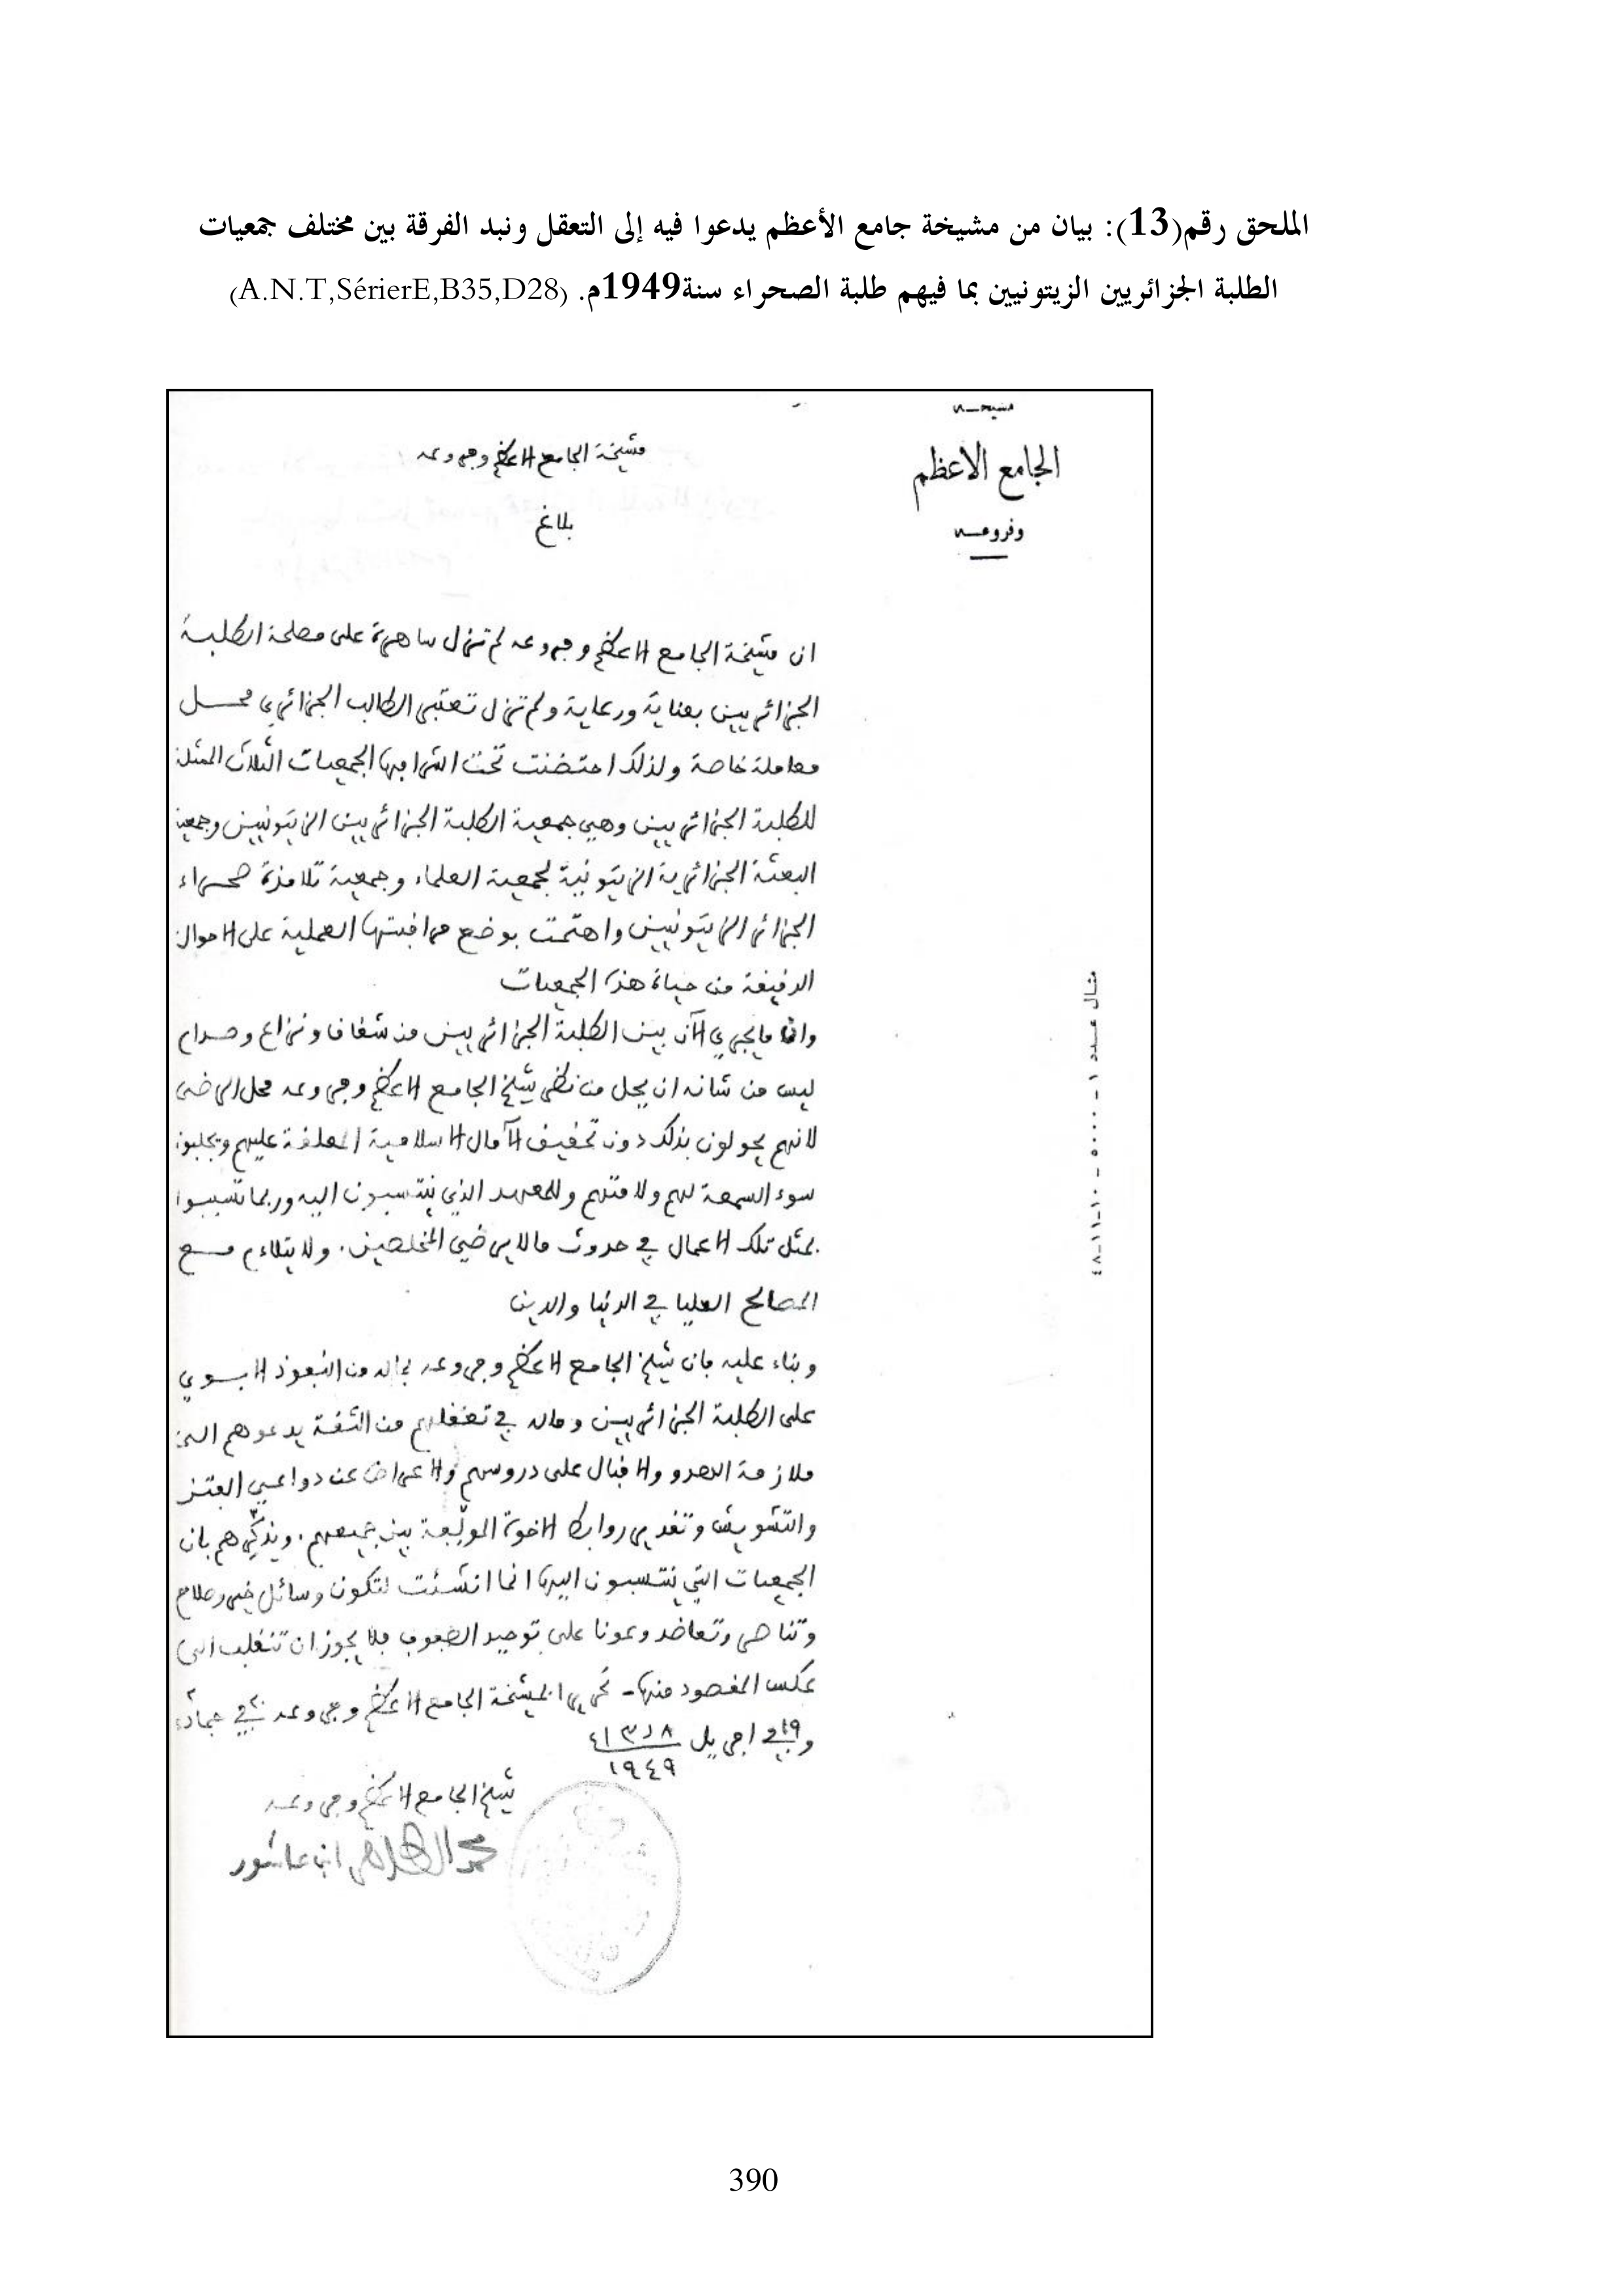 الملحق رقم(13): بيان من مشيخة جامع الأعظم يدعوا فيه إلى التعقل ونبد الفرقة بين مختلف جمعيات
الطلبة الجزائريين الزيتونيين بما فيهم طلبة الصحراء سنة1949م. (A.N.T,SérierE,B35,D28)
مشيخة
الجامع الاعظم
وفروعه
مشيخة الجامع الاعظم وفروعه
بلاغ
ان مشيخة الجامع الاعظم وفروعه لم تزل ساهرة على مصلحة الطلبة
الجزائريين بعناية ورعاية ولم تزل تعتبر الطالب الجزائري محل
معاملة خاصة ولذلك احتضنت تحت اشرافها الجمعيات الثلاث الممثلة
للطلبة الجزائريين وهي جمعية الطلبة الجزائريين الزيتونيين وجمعية
البعثة الجزائرية الزيتونية لجمعية العلماء وجمعية تلامذة صحراء
الجزائر الزيتونيين واهتمت بوضع مراقبتها العملية على الاحوال
الدقيقة من حياة هذه الجمعيات
وان ما يجري الآن بين الطلبة الجزائريين من شقاق ونزاع وصدام
ليس من شانه ان يحل من نظر شيخ الجامع الاعظم وفروعه محل الرضى
لانهم يحولون بذلك دون تحقيق الآمال الاسلامية المعلقة عليهم ويجلبون
سوء السمعة لهم ولامتهم وللمعهد الذي ينتسبون اليه وربما تسببوا
بمثل تلك الاعمال في حدوث مالا يرضي المخلصين. ولا يتلاءم مع
المصالح العليا في الدنيا والدين
وبناء عليه فان شيخ الجامع الاعظم وفروعه بماله من النفوذ الابوي
على الطلبة الجزائريين وماله في تعقلهم من الثقة يدعوهم الى
ملازمة الهدو والاقبال على دروسهم والاعراض عن دواعي الفتن
والتشويش وتقدير روابط الاخوة الموثقة بين جميعهم. ويذكّرهم بان
الجمعيات التي ينتسبون اليها انما انشئت لتكون وسائل خير وصلاح
وتناصر وتعاضد وعونا على توحيد الصفوف فلا يجوز ان تنقلب الى
عكس المقصود منها - تحريرا بمشيخة الجامع الاعظم وفروعه في جمادى
وفي ١٩ افريل
١٩٤٩
شيخ الجامع الاعظم وفروعه
محمد الطاهر ابن عاشور
مثال عدد ١ - ٥٠٠٠ - ١٠-١١-٤٨
390